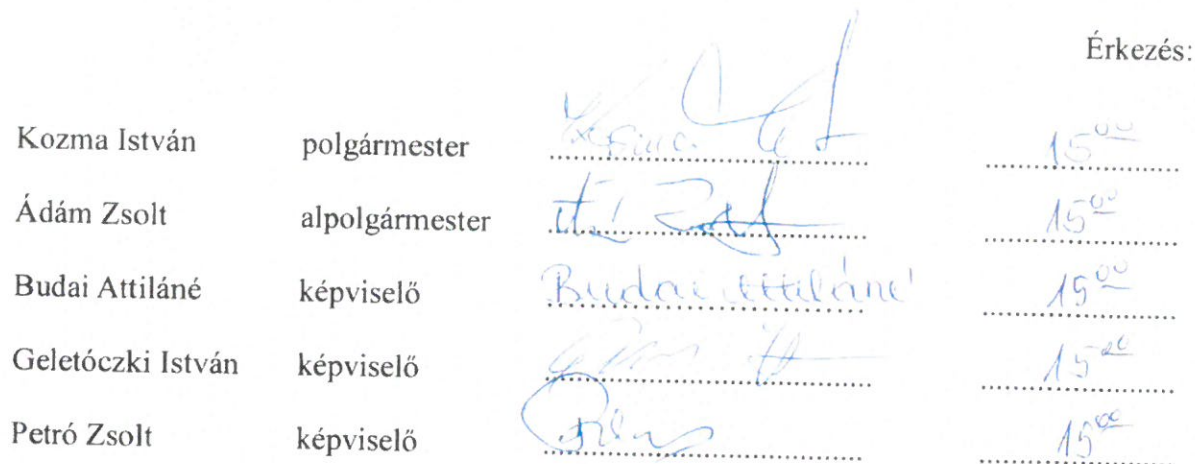 Érkezés:
Kozma István polgármester 15⁰⁰
Ádám Zsolt alpolgármester 15⁰⁰
Budai Attiláné képviselő Budai Attiláné 15⁰⁰
Geletóczki István képviselő 15⁰⁰
Petró Zsolt képviselő 15⁰⁰